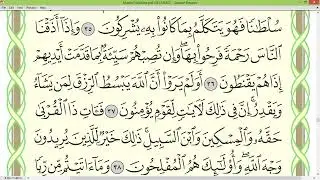 سُلْطَٰنًا فَهُوَ يَتَكَلَّمُ بِمَا كَانُوا۟ بِهِۦ يُشْرِكُونَ ٣٥ وَإِذَآ أَذَقْنَا
ٱلنَّاسَ رَحْمَةً فَرِحُوا۟ بِهَا وَإِن تُصِبْهُمْ سَيِّئَةٌۢ بِمَا قَدَّمَتْ أَيْدِيهِمْ
إِذَا هُمْ يَقْنَطُونَ ٣٦ أَوَلَمْ يَرَوْا۟ أَنَّ ٱللَّهَ يَبْسُطُ ٱلرِّزْقَ لِمَن يَشَآءُ
وَيَقْدِرُ إِنَّ فِى ذَٰلِكَ لَءَايَٰتٍ لِّقَوْمٍ يُؤْمِنُونَ ٣٧ فَـَٔاتِ ذَا ٱلْقُرْبَىٰ
حَقَّهُۥ وَٱلْمِسْكِينَ وَٱبْنَ ٱلسَّبِيلِ ذَٰلِكَ خَيْرٌ لِّلَّذِينَ يُرِيدُونَ
وَجْهَ ٱللَّهِ وَأُو۟لَٰٓئِكَ هُمُ ٱلْمُفْلِحُونَ ٣٨ وَمَآ ءَاتَيْتُم مِّن رِّبًا